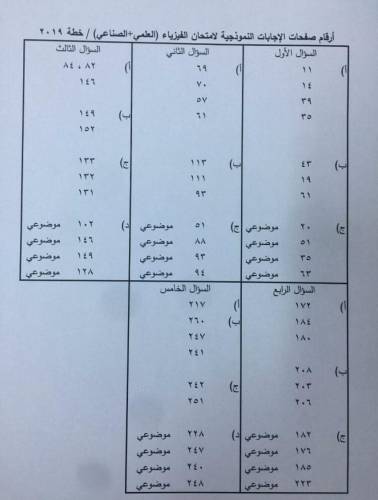 أرقام صفحات الإجابات النموذجية لامتحان الفيزياء (العلمي+الصناعي) / خطة ٢٠١٩
السؤال الأول
أ) ١١
١٤
٣٩
٣٥
ب) ٤٣
١٩
٦١
ج) ٢٠ موضوعي
٥١ موضوعي
٣٥ موضوعي
٦٣ موضوعي
السؤال الثاني
أ) ٦٩
٧٠
٥٧
٦١
ب) ١١٣
١١١
٩٣
ج) ٥١ موضوعي
٨٨ موضوعي
٩٣ موضوعي
٩٤ موضوعي
السؤال الثالث
أ) ٨٢ ، ٨٤
١٤٦
ب) ١٤٩
١٥٢
ج) ١٣٣
١٣٢
١٣١
د) ١٠٢ موضوعي
١٤٦ موضوعي
١٤٩ موضوعي
١٢٨ موضوعي
السؤال الرابع
أ) ١٧٢
١٨٤
١٨٠
ب) ٢٠٨
٢٠٣
٢٠٦
ج) ١٨٢ موضوعي
١٧٦ موضوعي
١٨٥ موضوعي
٢٢٣ موضوعي
السؤال الخامس
أ) ٢١٧
ب) ٢٦٠
٢٤٧
٢٤١
ج) ٢٤٢
٢٥١
د) ٢٢٨ موضوعي
٢٤٧ موضوعي
٢٤٠ موضوعي
٢٤٨ موضوعي